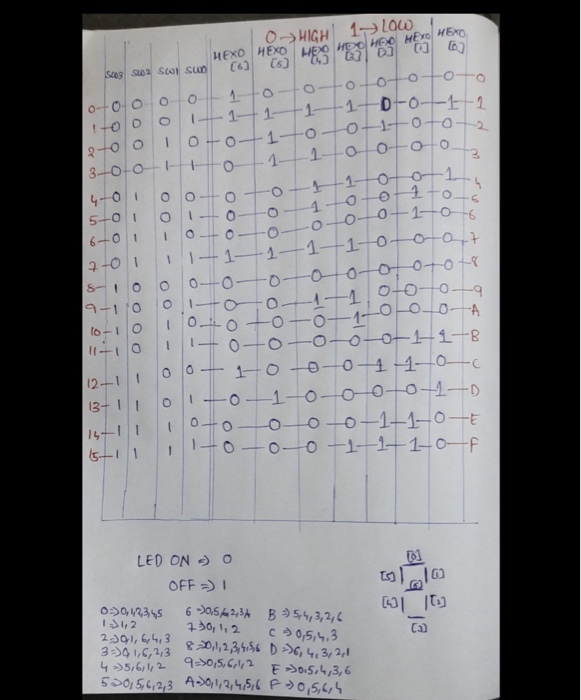 0→HIGH 1→LOW
SW3 SW2 SW1 SW0 HEX0[6] HEX0[5] HEX0[4] HEX0[3] HEX0[2] HEX0[1] HEX0[0]
0-0 0 0 0-1-0-0-0-0-0-0-0
1-0 0 0 1-1-1-1-1-0-0-1-1
2-0 0 1 0-0-1-0-0-1-0-0-2
3-0 0 1 1-0-1-1-0-0-0-0-3
4-0 1 0 0-0-0-1-1-0-0-1-4
5-0 1 0 1-0-0-1-0-0-1-0-5
6-0 1 1 0-0-0-0-0-0-1-0-6
7-0 1 1 1-1-1-1-1-0-0-0-7
8-1 0 0 0-0-0-0-0-0-0-0-8
9-1 0 0 1-0-0-1-1-0-0-0-9
10-1 0 1 0-0-0-0-1-0-0-0-A
11-1 0 1 1-0-0-0-0-0-1-1-B
12-1 1 0 0-1-0-0-0-1-1-0-C
13-1 1 0 1-0-1-0-0-0-0-1-D
14-1 1 1 0-0-0-0-0-1-1-0-E
15-1 1 1 1-0-0-0-1-1-1-0-F
LED ON ⇒ 0
OFF ⇒ 1
[0]
[5] [6] [1]
[4] [2]
[3]
1⇒1,2 7⇒0,1,2 C⇒0,5,4,3
2⇒0,1,6,4,3 8⇒0,1,2,3,4,5,6 D⇒6,4,3,2,1
3⇒0,1,6,2,3 9⇒0,5,6,1,2 E⇒0,5,4,3,6
4⇒5,6,1,2
5⇒0,5,6,2,3 A⇒0,1,2,4,5,6 F⇒0,5,6,4